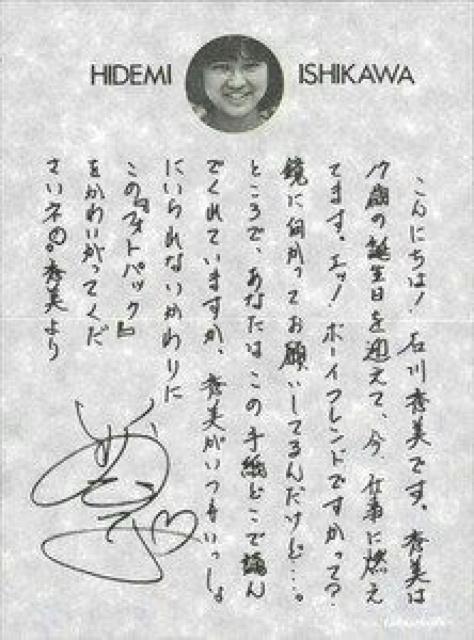 HIDEMI ISHIKAWA
こんにちは！石川秀美です。秀美は
17歳の誕生日を迎えて、今、仕事に燃え
てます。エッ！ボーイフレンドですかって？
鏡に向かってお願いしてるんだけど…。
ところで、あなたはこの手紙どこで読ん
でくれていますか。秀美がいつもいっしょ
にいられないかわりに
この『フォトパック』
をかわいがってくだ
さいネ。秀美より